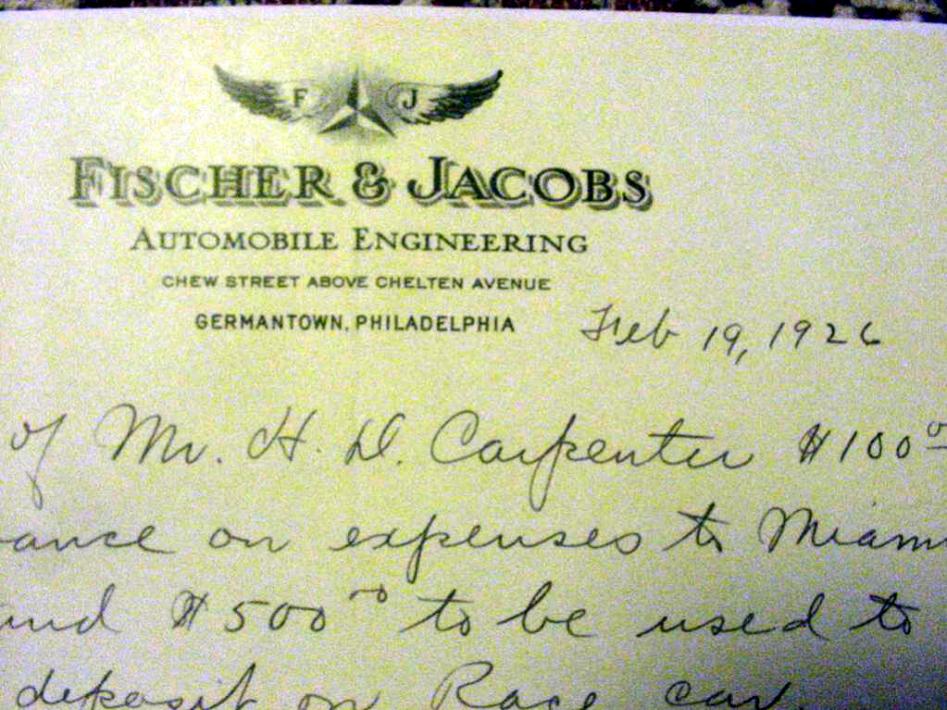 F J
FISCHER & JACOBS
AUTOMOBILE ENGINEERING
CHEW STREET ABOVE CHELTEN AVENUE
GERMANTOWN, PHILADELPHIA
Feb 19, 1926
of Mr. H. D. Carpenter $100
ance on expenses to Miam
and $500 00 to be used to
deposit on Race car.